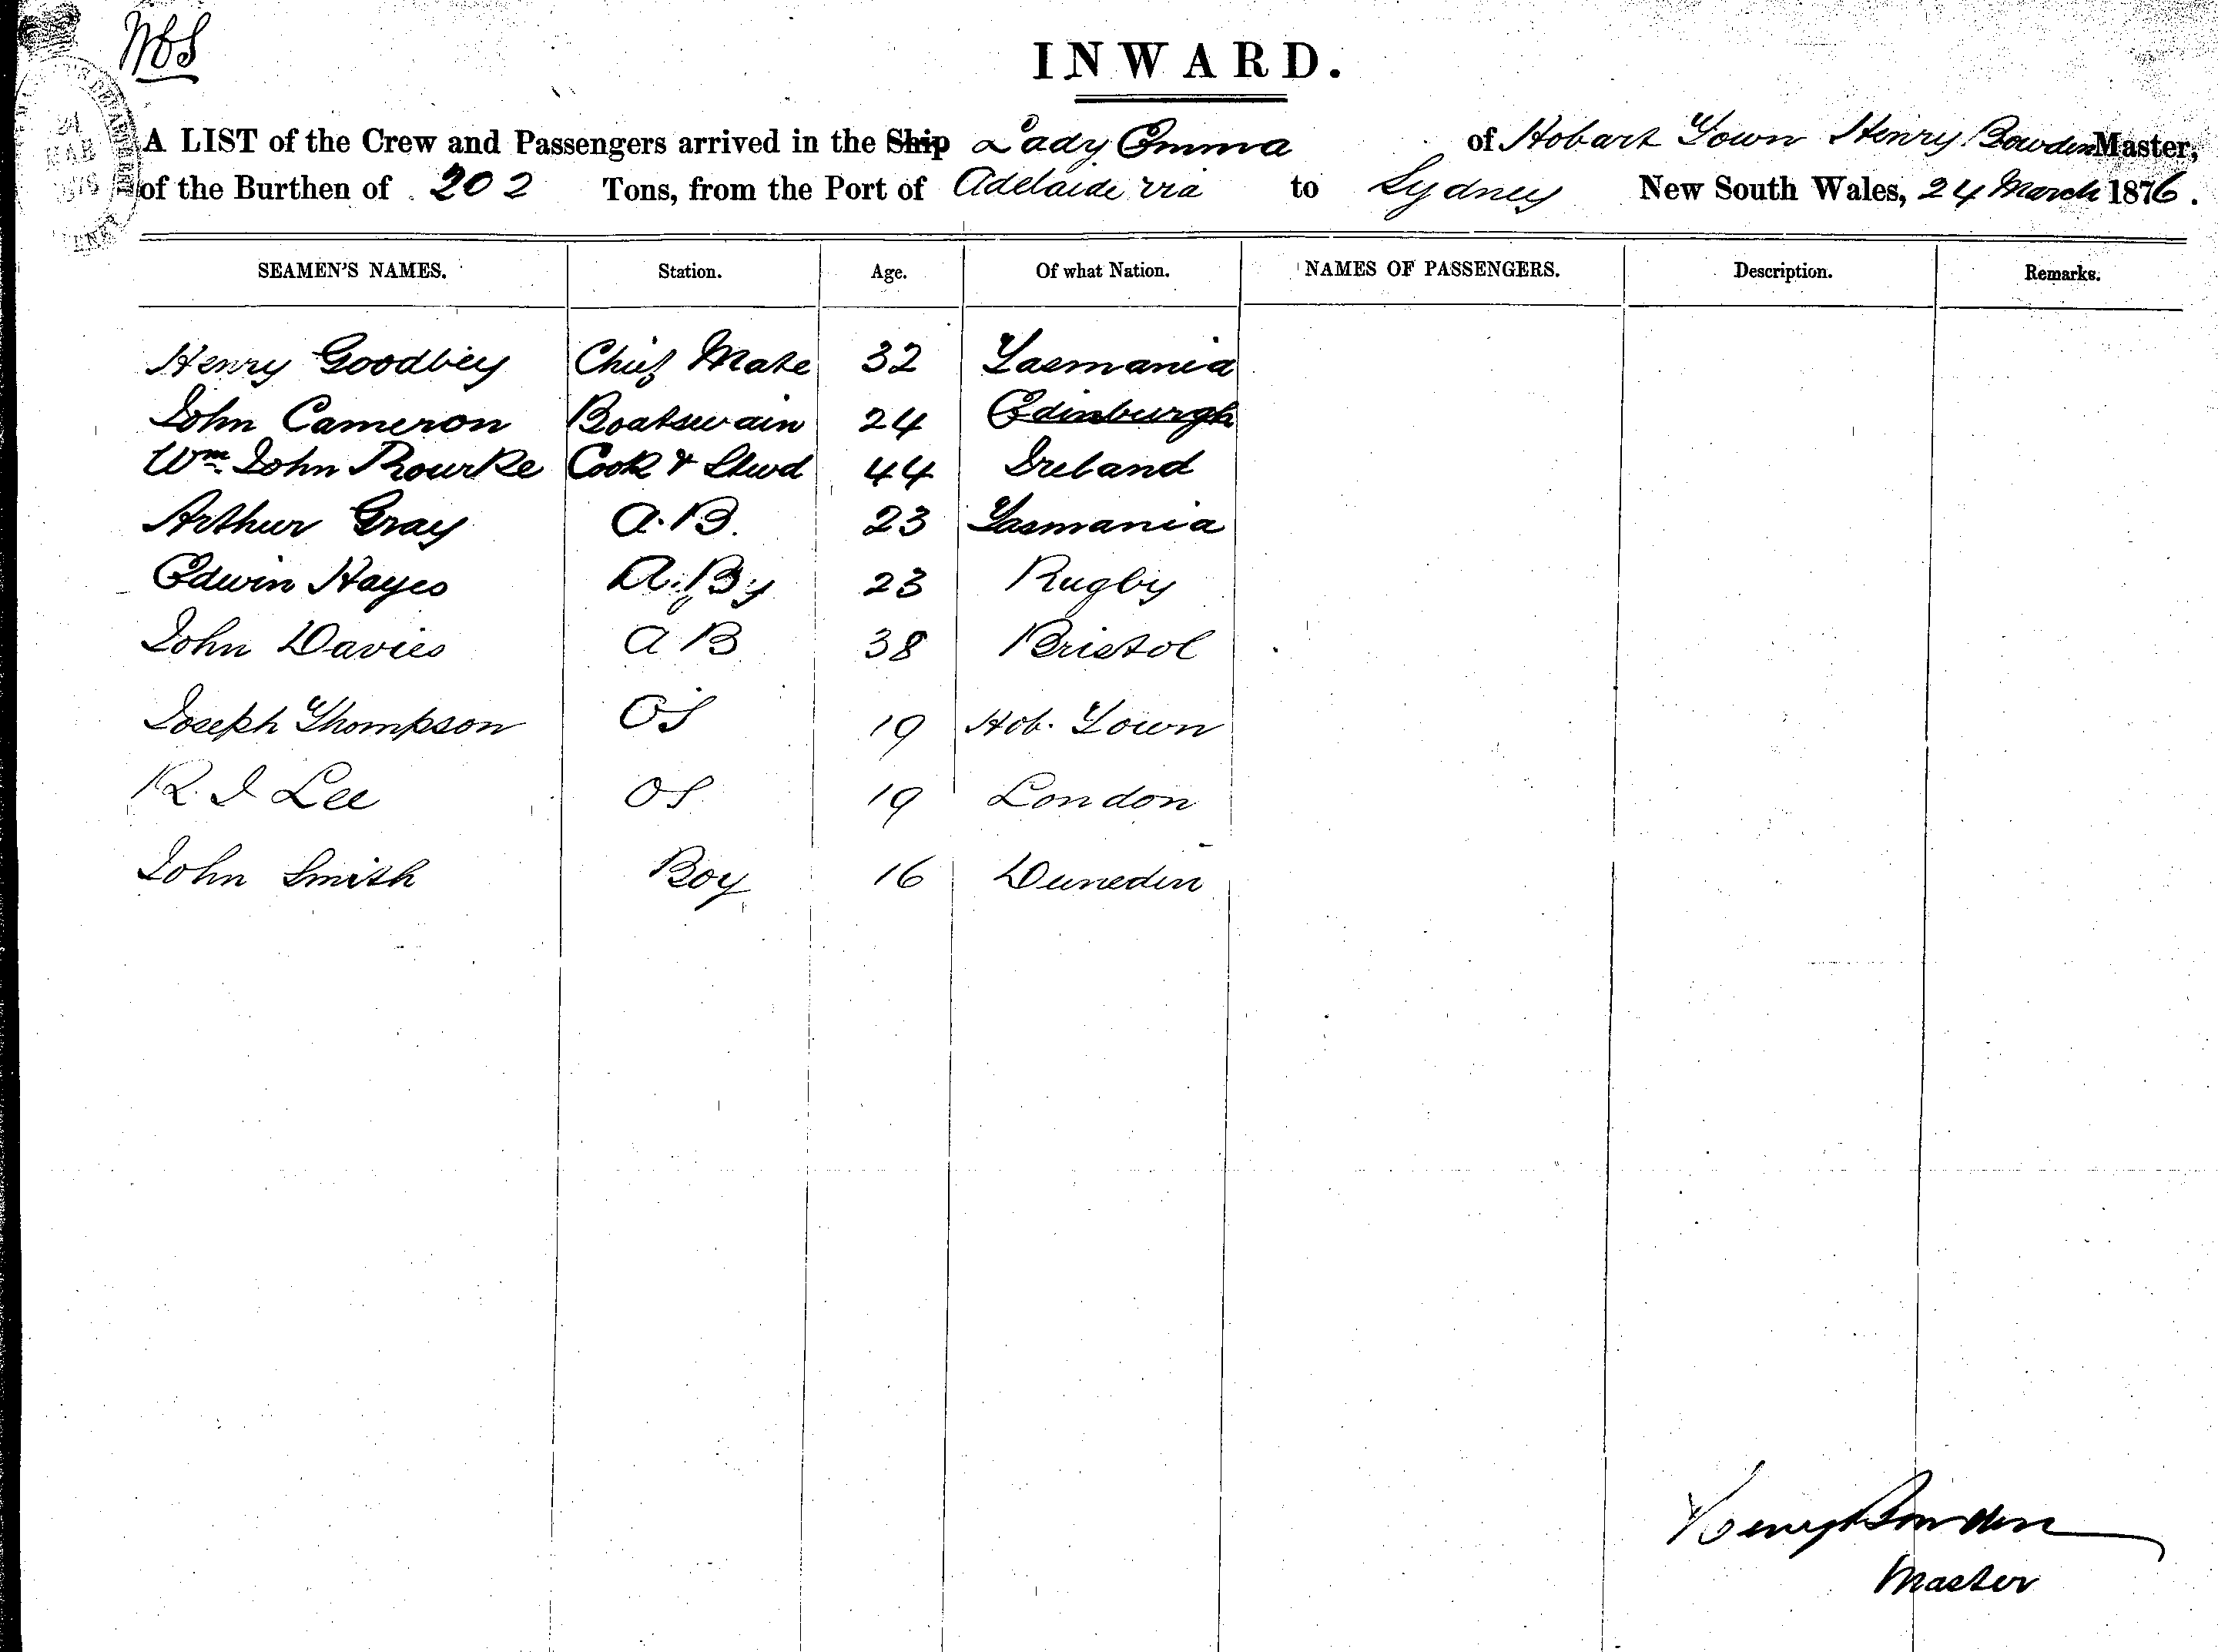 INWARD.
A LIST of the Crew and Passengers arrived in the Ship Lady Emma of Hobart Town Henry Bowden Master,
of the Burthen of 202 Tons, from the Port of Adelaide via to Sydney New South Wales, 24 March 1876.
SEAMEN'S NAMES. Station. Age. Of what Nation. NAMES OF PASSENGERS. Description. Remarks.
Henry Goodbey Chief Mate 32 Tasmania
John Cameron Boatswain 24 Edinburgh
Wm. John Rourke Cook & Stwd 44 Ireland
Arthur Gray A.B. 23 Tasmania
Edwin Hayes A.B. 23 Rugby
John Davies AB 38 Bristol
Joseph Thompson OS 19 Hob. Town
R. J Lee OS 19 London
John Smith Boy 16 Dunedin
Henry Bowden
Master